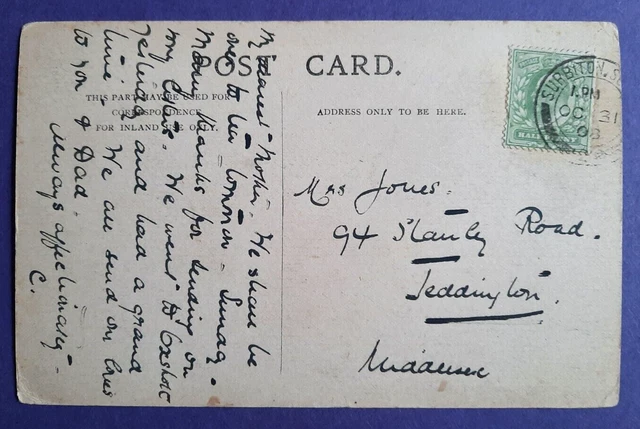 POST CARD.
THIS PART MAY BE USED FOR
CORRESPONDENCE
FOR INLAND USE ONLY.
ADDRESS ONLY TO BE HERE.
SURBITON. S
1. PM
OC 31
08
Mrs Jones.
94 Stanley Road.
Teddington.
Middlesex
My dearest Mother. We shall be
over to tea tomorrow - Sunday.
Many thanks for sending on
my letter. We went to
yesterday and had a grand
time. We all send our love
to you & Dad.
always affectionately -
C.